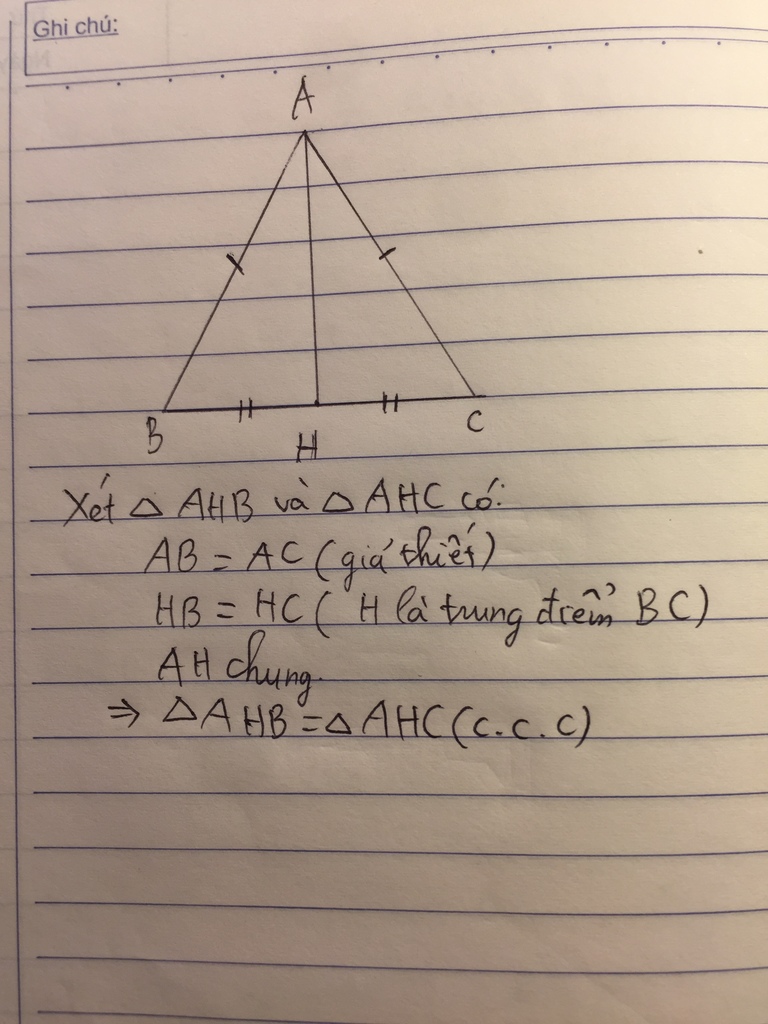 Ghi chú:
A
B
H
C
Xét △ AHB và △ AHC có:
AB = AC (giá thiết)
HB = HC ( H là trung điểm BC)
AH chung.
⇒ △AHB = △AHC (c.c.c)